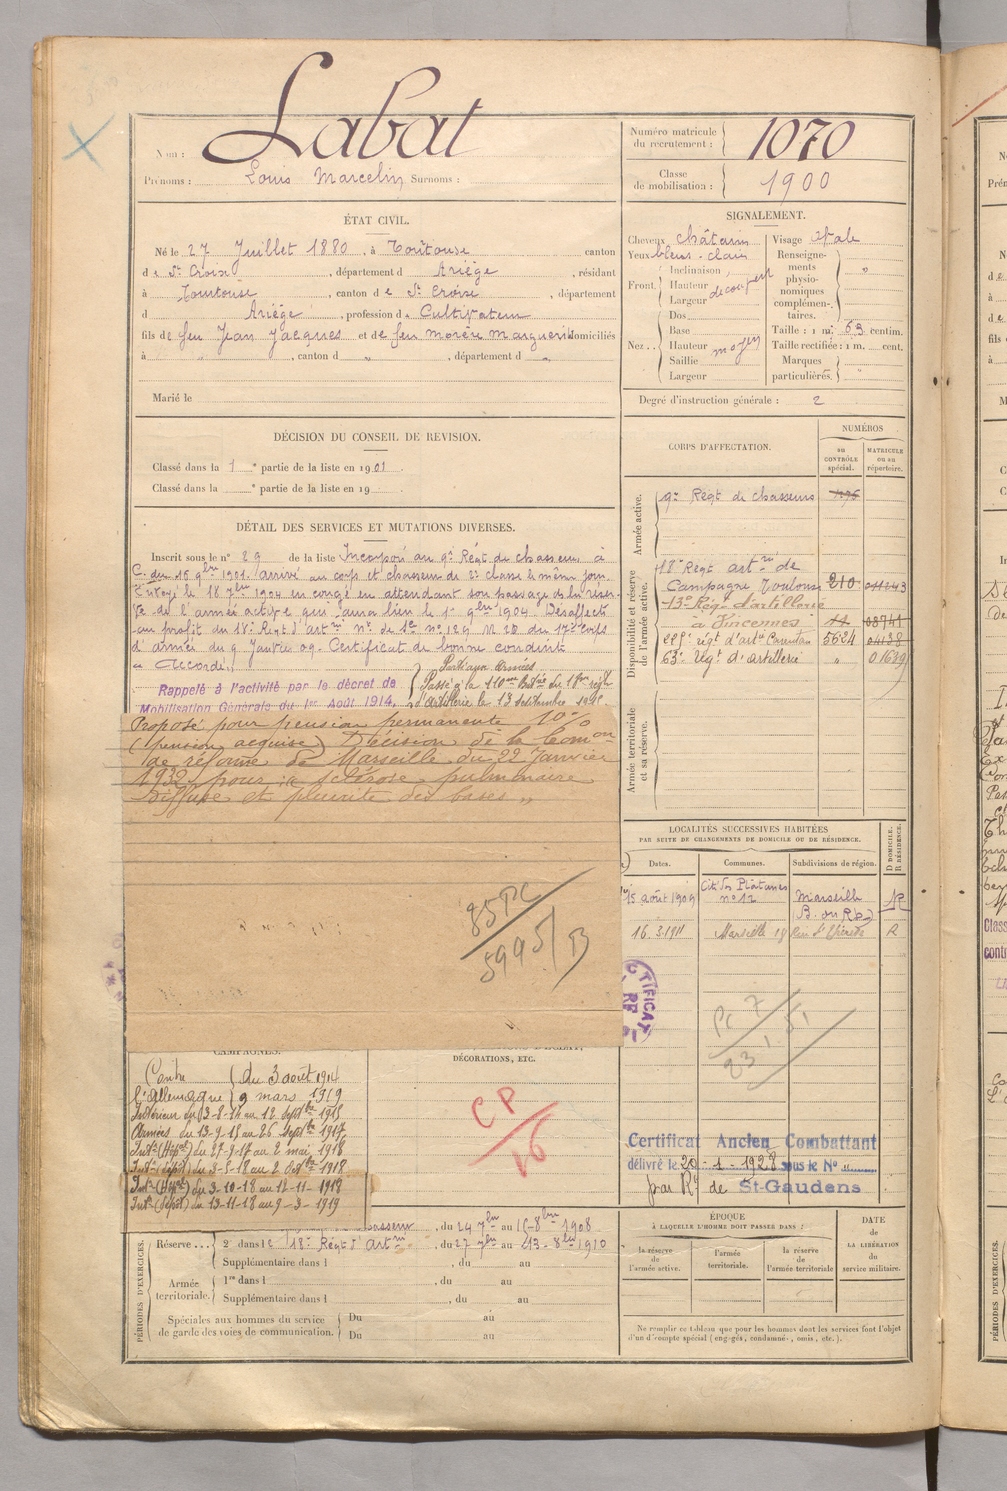 Nom : Labat
Prénoms : Louis Marcelin Surnoms :
Numéro matricule
du recrutement : 1070
Classe
de mobilisation : 1900
ÉTAT CIVIL.
Né le 27 Juillet 1880, à Tourtouse canton
de Ste Croix, département d Ariège, résidant
à Tourtouse, canton de St. Croix, département
d Ariège, profession de Cultivateur
fils de feu Jean Jacques et de feu Marguerite domiciliés
à " , canton d " , département d "
Marié le
SIGNALEMENT.
Cheveux châtain
Yeux bleus-clair
Front. Inclinaison
Hauteur découvert
Largeur
Nez.. Dos
Base
Hauteur moyen
Saillie
Largeur
Visage ovale
Renseigne-
ments
physio-
nomiques
complémen-
taires. "
Taille : 1 m. 63 centim.
Taille rectifiée : 1 m. cent.
Marques
particulières. "
Degré d'instruction générale : 2
DÉCISION DU CONSEIL DE REVISION.
Classé dans la 1e partie de la liste en 1901.
Classé dans la e partie de la liste en 19
DÉTAIL DES SERVICES ET MUTATIONS DIVERSES.
Inscrit sous le n° 29 de la liste Incorporé au 9e Régt de chasseurs à
C. du 16 9bre 1901. arrivé au corps et chasseur de 2e classe le même jour.
Envoyé le 18 7bre 1904 en congé en attendant son passage dans la réser-
ve de l'armée active qui aura lieu le 1er 9bre 1904. Désaffecté
au profit du 18e Régt d'artrie
d'armée du 9 Janvier 09. Certificat de bonne conduite
" Accordé.
Parti aux Armées.
Passé à la 110me Battie du 18me régt
d'artillerie le 13 Septembre 1915.
Rappelé à l'activité par le décret de
Mobilisation Générale du 1er Août 1914,
Proposé pour pension permanente 10%
(pension acquise) Décision de la Comon
de réforme de Marseille du 22 Janvier
1932 pour : sclérose pulmonaire
diffuse et pleurite des bases "
85PC
5995/B
CORPS D'AFFECTATION.
NUMÉROS
au
CONTRÔLE
spécial.
MATRICULE
ou au
répertoire.
Armée active.
9e Régt de chasseurs 1496
Disponibilité et réserve
de l'armée active.
18e Régt artrie de
Campagne Toulouse 210 011143
13e Rég. d'artillerie
à Vincennes 11 08941
Régt d'artie 5624 04138
63e Régt d'artillerie " 01639
Armée territoriale
et sa réserve.
LOCALITÉS SUCCESSIVES HABITÉES
PAR SUITE DE CHANGEMENTS DE DOMICILE OU DE RÉSIDENCE.
Dates. Communes. Subdivisions de région. D DOMICILE. R RÉSIDENCE.
15 août 1909 Cité des Platanes n° 12 Marseille (B. du Rh.) R
16.3.1911 Marseille R
PC 7
23.1.51
CAMPAGNES.
DÉCORATIONS, ETC.
Contre du 3 août 1914
l'Allemagne 9 mars 1919
Intérieur du 3-8-14 au 12 Septbre 1915
Armées du 13-9-15 au 26 Septbre 1917
Intr (Hôpal) du 27-9-17 au 2 mai 1918
Intr (dépôt) du 3-5-18 au 2 Octbre 1918
Intr (Hôpal) du 3-10-18 au 12-11-1918
Intr (Dépôt) du 13-11-18 au 9-3-1919
CP
16
Certificat Ancien Combattant
délivré le 20-1-1928 sous le N°
par Rt de St-Gaudens
PÉRIODES D'EXERCICES.
chasseurs, du 24 7bre au 15-8bre 1908
Réserve... 2e dans le 18e Régt d'Artrie, du 27 7bre au 13-8bre 1910
Supplémentaire dans l , du au
Armée
territoriale. 1re dans l , du au
Supplémentaire dans l , du au
Spéciales aux hommes du service
de garde des voies de communication. Du au
Du au
ÉPOQUE
À LAQUELLE L'HOMME DOIT PASSER DANS :
la réserve
de
l'armée active.
l'armée
territoriale.
la réserve
de
l'armée territoriale
DATE
de
LA LIBÉRATION
du
service militaire.
Ne remplir ce tableau que pour les hommes dont les services font l'objet
d'un décompte spécial (engagés, condamnés, omis, etc.).